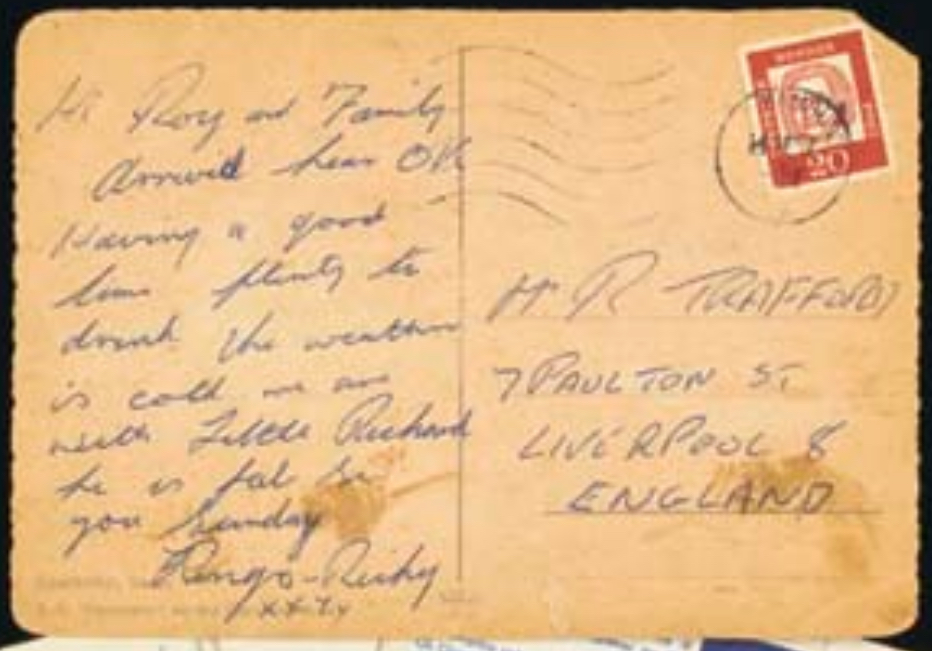 Hi Roy and Family
Arrived hear OK
Having a good
time plenty to
drink the weather
is cold we are
with Little Richard
he is fab see
you Sunday
Ringo-Richy
xxxx
20
H. R TRAFFORD
7 PAULTON ST
LIVERPOOL 8
ENGLAND